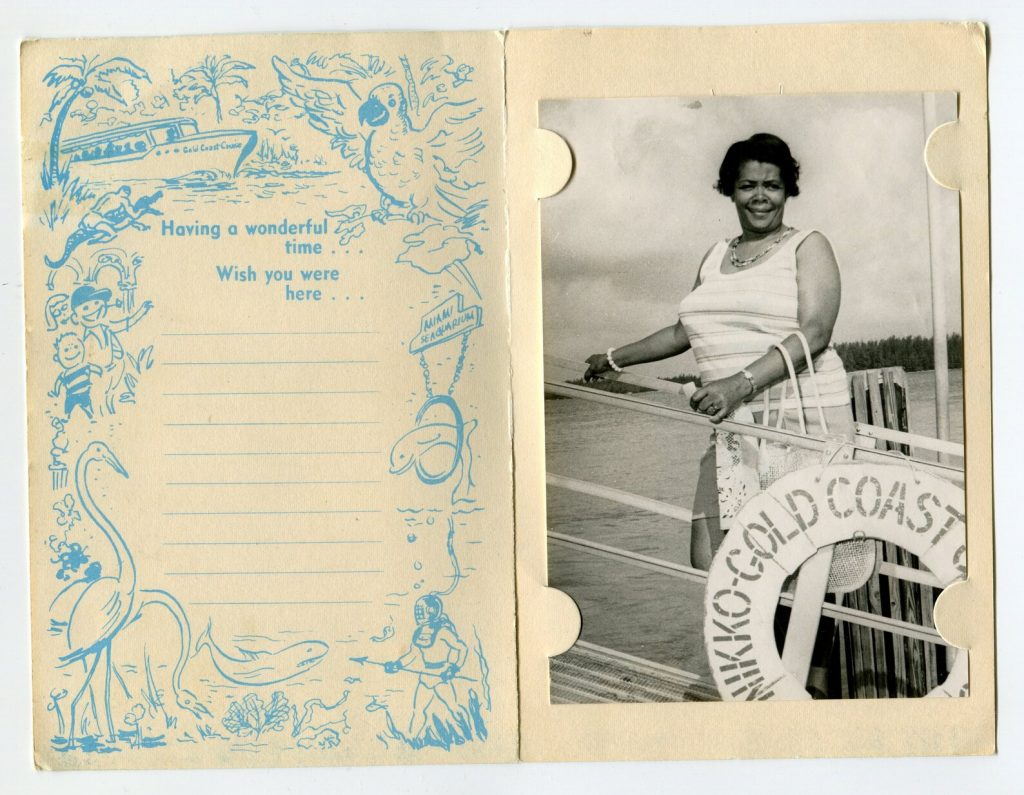 Gold Coast Cruise
Having a wonderful
time . . .
Wish you were
here . . .
MIAMI
SEAQUARIUM
NIKKO-GOLD COAST